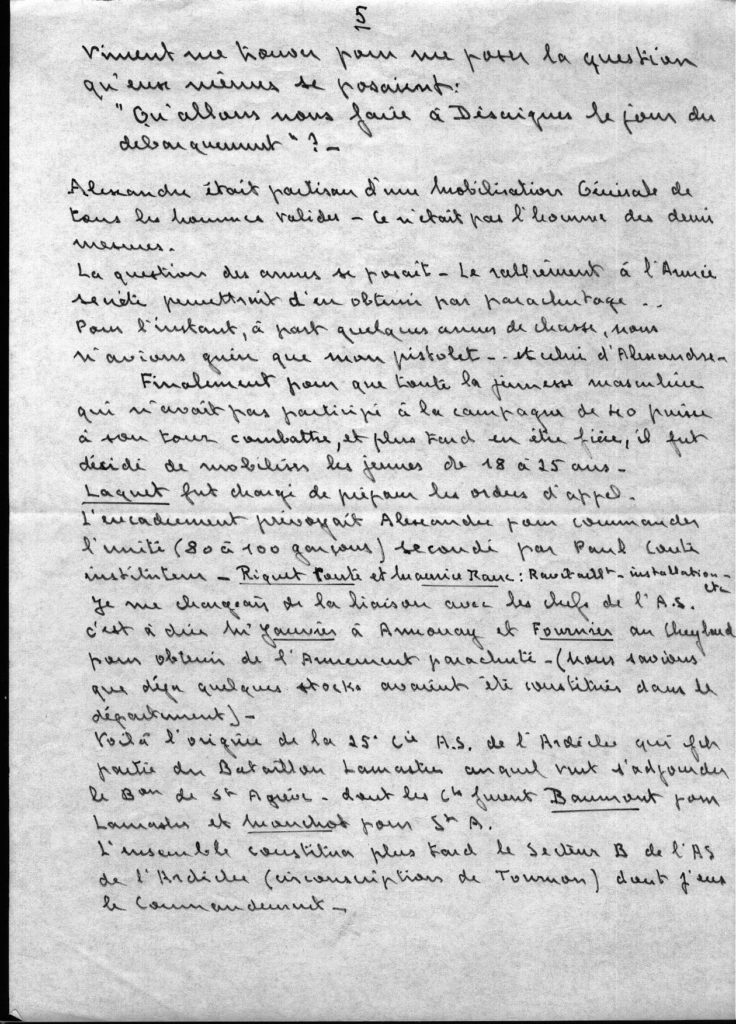 5
vinrent me trouver pour me poser la question
qu'eux mêmes se posaient :
"Qu'allons nous faire à Désaignes le jour du
débarquement" ? -
Alexandre était partisan d'une Mobilisation Générale de
tous les hommes valides - Ce n'était pas l'homme des demi
mesures.
La question des armes se posait - Le ralliement à l'Armée
secrète permettrait d'en obtenir par parachutage ..
Pour l'instant, à part quelques armes de chasse, nous
n'avions guère que mon pistolet - .. et celui d'Alexandre -
Finalement pour que toute la jeunesse masculine
qui n'avait pas participé à la campagne de 40 puisse
à son tour combattre, et plus tard en être fière, il fut
décidé de mobiliser les jeunes de 18 à 25 ans -
Laquet fut chargé de préparer les ordres d'appel.
L'encadrement prévoyait Alexandre pour commander
l'unité (80 à 100 garçons) secondé par Paul Conte
instituteur - Riquet Ponte et Maurice Ranc : Ravitaillt - installation - etc
Je me chargeais de la liaison avec les chefs de l'A.S.
c'est à dire Mr Jauvrès à Annonay et Fournier au Cheylard
pour obtenir de l'Armement parachuté - (nous savions
que déjà quelques stocks avaient été constitués dans le
département) -
Voilà l'origine de la 25e Cie A.S. de l'Ardèche qui fit
partie du Bataillon Lamastre auquel vint s'adjoindre
le Bon de St Agrève - dont les Cts furent Baumont pour
Lamastre et Manchot pour St A.
L'ensemble constitua plus tard le Secteur B de l'AS
de l'Ardèche (circonscription de Tournon) dont j'eus
le Commandement -